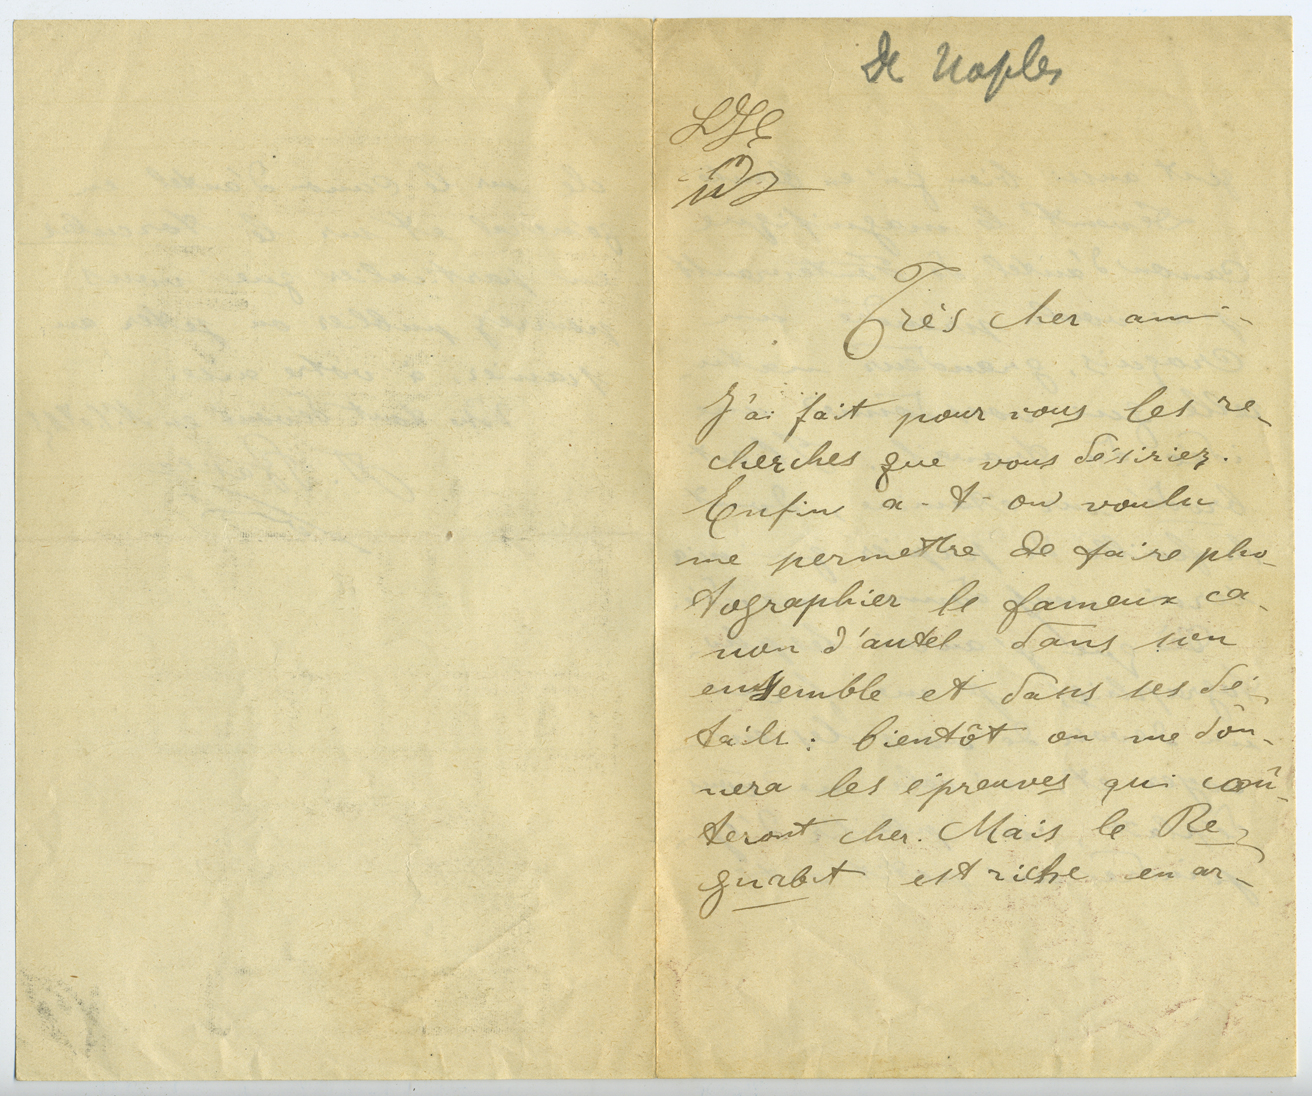 De Naples
Très cher ami -
J'ai fait pour vous les re-
cherches que vous désiriez.
Enfin a-t-on voulu
me permettre de faire pho-
tographier le fameux ca-
non d'autel dans son
ensemble et dans ses dé-
tails : bientôt on me don-
nera les épreuves qui coû-
teront cher. Mais le Re-
gnabit est riche en ar-